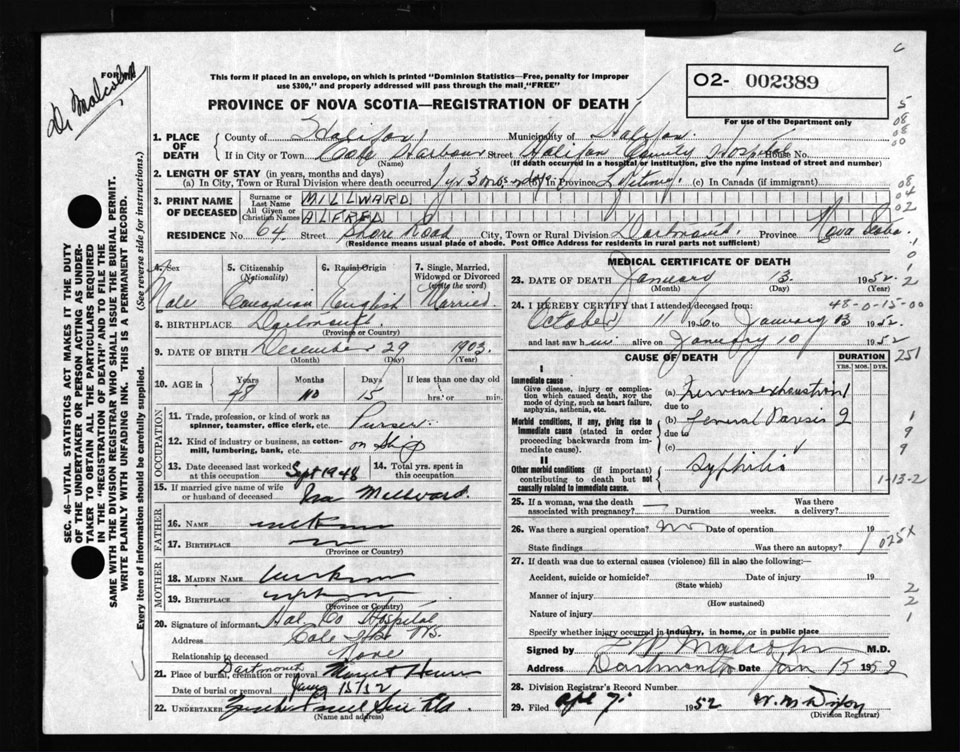 C
FOR
Dr Malcolm
This form if placed in an envelope, on which is printed "Dominion Statistics—Free, penalty for improper
use $300," and properly addressed will pass through the mail, "FREE"
O2- 002389
PROVINCE OF NOVA SCOTIA—REGISTRATION OF DEATH
For use of the Department only
1. PLACE OF DEATH County of Halifax Municipality of Halifax
If in City or Town Cole Harbour Street Halifax County Hospital House No.
(Name) (If death occurred in a hospital or institution, give the name instead of street and number)
2. LENGTH OF STAY (in years, months and days)
(a) In City, Town or Rural Division where death occurred 1 yr 3 mos days In Province Lifetime (c) In Canada (if immigrant)
3. PRINT NAME OF DECEASED Surname or Last Name MILLWARD
All Given or Christian Names ALFRED
RESIDENCE No. 64 Street Shore Road City, Town or Rural Division Dartmouth Province Nova Scotia
(Residence means usual place of abode. Post Office Address for residents in rural parts not sufficient)
4. Sex Male
5. Citizenship (Nationality) Canadian
6. Racial Origin English
7. Single, Married, Widowed or Divorced (write the word) Married
8. BIRTHPLACE Dartmouth
(Province or Country)
9. DATE OF BIRTH December 29 1903
(Month) (Day) (Year)
10. AGE in Years 48 Months No Days 15 If less than one day hrs. or min.
OCCUPATION
11. Trade, profession, or kind of work as
spinner, teamster, office clerk, etc. Purser
12. Kind of industry or business, as cotton-
mill, lumbering, bank, etc. on Ship
13. Date deceased last worked at this occupation Sept 1948
14. Total yrs. spent in this occupation
15. If married give name of wife
or husband of deceased Millward
FATHER
16. NAME unknown
17. BIRTHPLACE
(Province or Country)
MOTHER
18. MAIDEN NAME unknown
19. BIRTHPLACE unknown
(Province or Country)
20. Signature of informant Hal Co Hospital
Address Cole Hbr NS.
Relationship to deceased None
21. Place of burial, cremation or removal Dartmouth Mount
Date of burial or removal Jany 15/52
22. UNDERTAKER
(Name and address)
MEDICAL CERTIFICATE OF DEATH
23. DATE OF DEATH January 13 1952
(Month) (Day) (Year)
48-0-15-00
24. I HEREBY CERTIFY that I attended deceased from:
October 11 1950 to January 13 1952
and last saw him alive on January 10 1952
CAUSE OF DEATH
DURATION
YRS. MOS. DYS.
I
Immediate cause
Give disease, injury or complica-
tion which caused death, NOT the
mode of dying, such as heart failure,
asphyxia, asthenia, etc.
(a) Nervous exhaustion 1
due to
Morbid conditions, if any, giving rise to
immediate cause (stated in order
proceeding backwards from im-
mediate cause).
(b) General Paresis 2
due to
(c)
II
Other morbid conditions (if important)
contributing to death but not
causally related to immediate cause.
Syphilis
25. If a woman, was the death
associated with pregnancy? Duration weeks. Was there a delivery?
26. Was there a surgical operation? No Date of operation 19
State findings Was there an autopsy?
27. If death was due to external causes (violence) fill in also the following:—
Accident, suicide or homicide? Date of injury 19
(State which)
Manner of injury
(How sustained)
Nature of injury
Specify whether injury occurred in industry, in home, or in public place
Signed by Malcolm M.D.
Address Dartmouth Date Jan 15 1952
28. Division Registrar's Record Number
29. Filed Apl 7. 1952 W. M. Dixon
(Division Registrar)
5
08
08
0
08
04
02
1
0
1
2
251
1
9
9
1-13-2
025X
2
2
1
SEC. 46—VITAL STATISTICS ACT MAKES IT THE DUTY
OF THE UNDERTAKER OR PERSON ACTING AS UNDER-
TAKER TO OBTAIN ALL THE PARTICULARS REQUIRED
IN THE "REGISTRATION OF DEATH" AND TO FILE THE
SAME WITH THE DIVISION REGISTRAR WHO SHALL ISSUE THE BURIAL PERMIT.
WRITE PLAINLY WITH UNFADING INK. THIS IS A PERMANENT RECORD.
Every item of information should be carefully supplied. (See reverse side for instructions.)